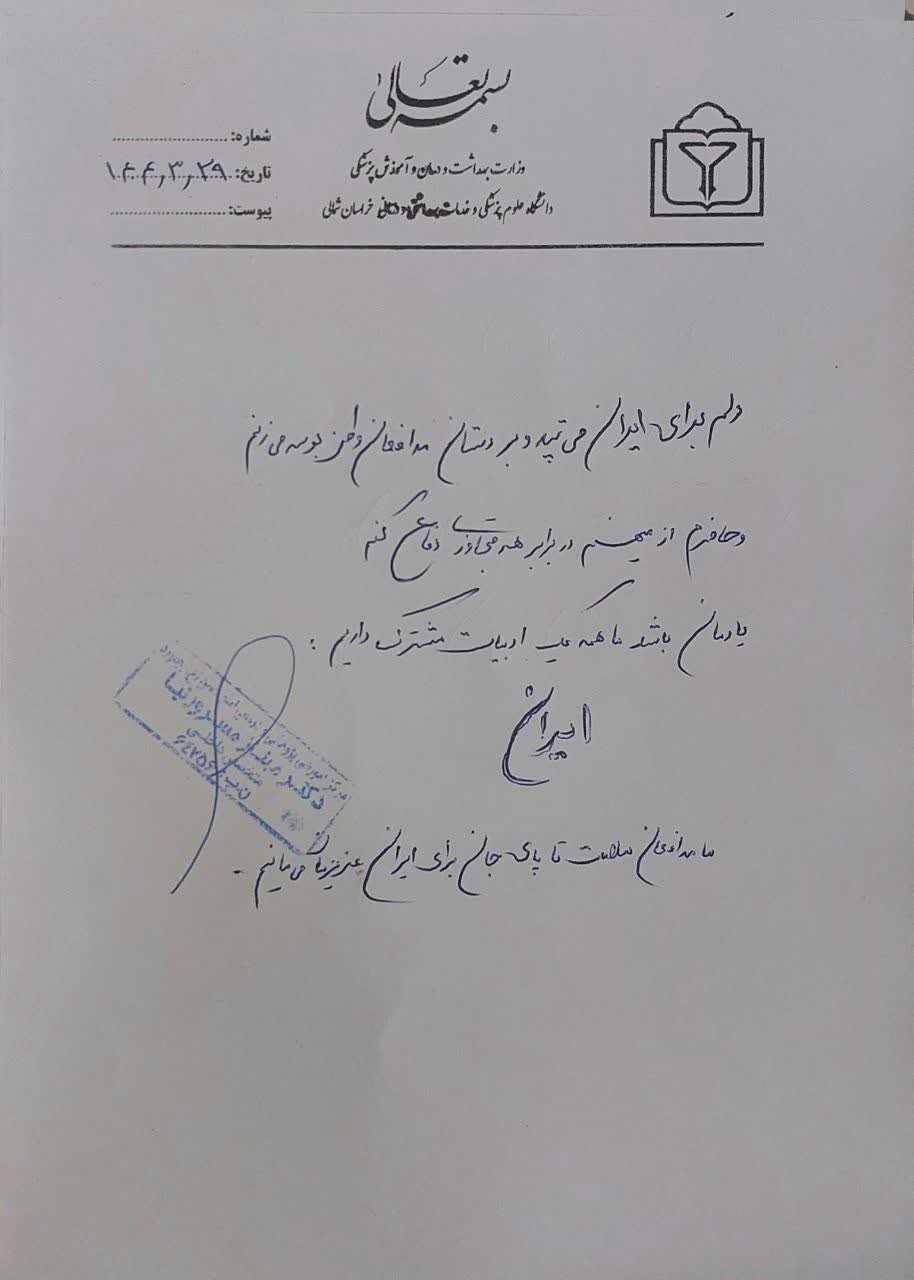 بسمه تعالی
وزارت بهداشت و درمان و آموزش پزشکی
دانشگاه علوم پزشکی و خدمات بهداشتی و درمانی خراسان شمالی
شماره:
تاریخ: ۱۴۰۴,۳,۲۹
پیوست:
دلم برای ایران می تپد و بر دستان مدافعان وطن بوسه می زنم
و حاضرم از میهنم در برابر هر متجاوزی دفاع کنم
یادمان باشد ما همه یک ادبیات مشترک داریم :
ایران
دکتر
ما مدافعان سلامت تا پای جان برای ایران عزیزمان می مانیم .